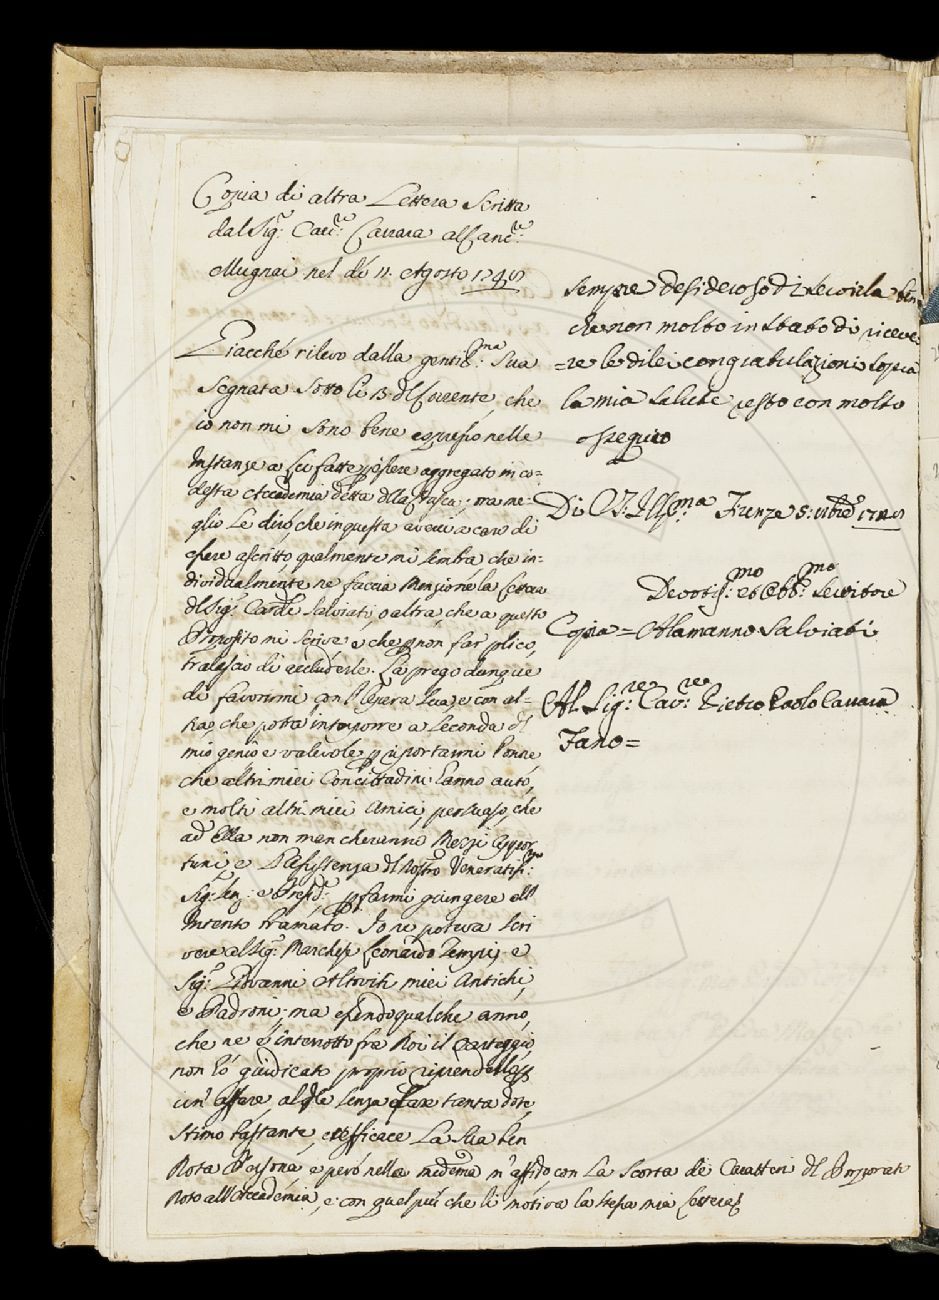 Copia di altra Lettera Scritta
dal Sig.r Cav.re Carrara al Canc.re
Mugnai nel dì 11. Agosto 174
Giacché rilevo dalla gentil.ma Sua
Segnata Sotto li 13 del Corrente, che
io non mi Sono bene espresso nelle
Instanze a Lei fatte p essere aggregato in co=
desta Accademia detta della Crusca; ora me-
glio Le dirò, che in questa avevo a caro di
essere ascritto, qualmente mi sembra che in-
dividualmente ne faccia Menzione la Lettera
del Sig.r Card.le Salviati, o altra, che a questo
Proposito mi Scrive, e che p non far plico,
tralascio di accluderle. La prego dunque
di favorirmi con l'Opera Sua, e con al-
tra, che potrà interporre a Seconda del
mio genio e valevole p riportarmi l'onore
che altri miei Concittadini hanno avuto,
e molti altri miei Amici, persuaso, che
ad Ella non mancheranno Mezzi oppor
tuni, e l'Assistenza del Nostro Veneratiss.mo
Sig.r Sen.re e Presid.e p farmi giungere all'
Intento bramato. Io ne poteva Scri
vere al Sig.r Marchese Leonardo Tempi, e
Sig.r Giovanni Altoviti miei Antichi,
e Padroni; ma essendo qualche anno,
che ne è interrotto fra Noi il Carteggio
non hò giudicato proprio riprenderlo p
un' affare, al q.le senza essare tienta dote,
Stimo bastante, ed efficace La Sua ben
Nota Persona, e però nella medema m'affido, con La Scorta di Caratteri del Porporato
Noto all'Accademia, e con quel più che li motiva la stessa mia Lettera
sempre desideroso di servirla ben
che non molto in stato di riceve-
=re le di lei congratulazioni sopra
la mia salute resto con molto
ossequio
Di V. S. Ill.ma Firenze 5: 174
Devotiss.mo ed Obb.mo Servitore
Copia = Alamanno Salviati
Al Sig.re Cav.re Pietro Paolo Carrara
Fano=